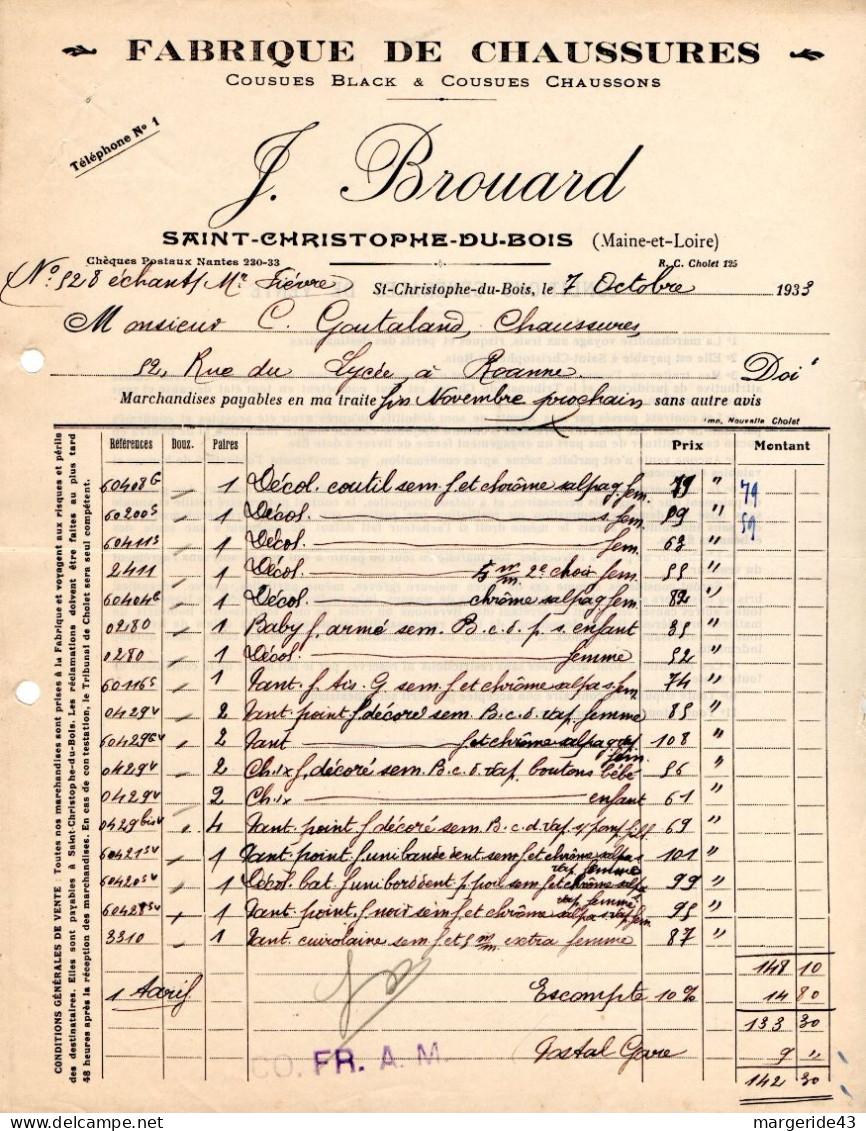 FABRIQUE DE CHAUSSURES
COUSUES BLACK & COUSUES CHAUSSONS
Téléphone No 1
J. Brouard
SAINT-CHRISTOPHE-DU-BOIS (Maine-et-Loire)
Chèques Postaux Nantes 230-33 R. C. Cholet 125
No 528 échant/ Mr Fièvre St-Christophe-du-Bois, le 7 Octobre 1933
Monsieur C. Goutaland, Chaussures,
52, Rue du Lycée, à Roanne. Doit
Marchandises payables en ma traite fin Novembre prochain sans autre avis
Imp. Nouvelle Cholet
Références Douz. Paires Prix Montant
60408G 1 Décol. coutil sem. f. et chrôme salpa g. fem. 79 " 79
60200S 1 Décol. s. fem. 59 " 59
60411S 1 Décol. fem. 63 "
2411 1 Décol. 5 m/m 2e choix fem. 55 "
60404G 1 Décol. chrôme salpa g. fem. 82 "
0280 1 Baby f. armé sem. B.c.d. p. s. enfant 35 "
0280 1 Décol. femme 52 "
60116S 1 Pant. f. tis. G. sem. f. et chrôme salpa s. fem. 74 "
0429V 2 Pant. point f. décoré sem. B.c.d. vap. femme 85 "
60429GV 2 Pant f. et chrôme salpa g. vap. fem. 108 "
0429V 2 Ch.ix f. décoré sem. B.c.d. vap. boutons bébé 56 "
0429V 2 Ch.ix enfant 61 "
0429bisV 4 Pant. point f. décoré sem. B.c.d. vap. s/ pomp. fill. 69 "
60421SV 1 Pant. point f. uni bande dent sem. f. et chrôme salpa s. vap. femme 101 "
60420SV 1 Décol. bat. f. uni bord dent p. pon sem. f. et chrôme salpa vap. femme 99 "
60428SV 1 Pant. point f. noir sem. f. et chrôme salpa s. vap. fem. 95 "
3310 1 Pant. cuirolaine sem. f. et 5 m/m extra femme 87 "
148 10
1 Tarif Escompte 10% 14 80
133 30
Postal Gare 9 "
142 30
CO. FR. A. M.
CONDITIONS GÉNÉRALES DE VENTE Toutes nos marchandises sont prises à la Fabrique et voyagent aux risques et périls
des destinataires. Elles sont payables à Saint-Christophe-du-Bois. Les réclamations doivent être faites au plus tard
48 heures après la réception des marchandises. En cas de contestation, le Tribunal de Cholet sera seul compétent.
margeride43